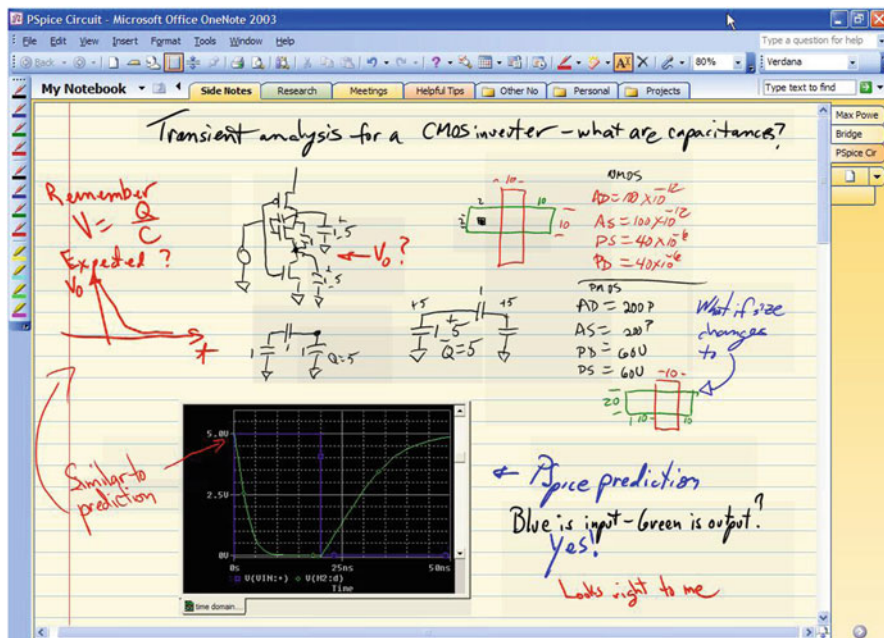 PSpice Circuit - Microsoft Office OneNote 2003
File Edit View Insert Format Tools Window Help
Type a question for help
Back
80%
Verdana
My Notebook
Side Notes Research Meetings Helpful Tips Other No Personal Projects
Type text to find
Max Powe
Bridge
PSpice Cir
Transient analysis for a CMOS inverter - what are capacitances?
Remember
V = Q/C
Expected?
Vo
t
+
1 5
+
1 5
Vo?
1
1
1 Q=5
+5 1 +5
+
1 5
-
Q=5
-10-
2 10
10
NMOS
AD = 100 x10^-12
AS = 100 x10^-12
PS = 40 x10^-6
PD = 40 x10^-6
PMOS
AD = 200P
AS = 200P
PD = 60U
PS = 60U
What if size
changes
to
-10-
20
10 10
Similar to
prediction
5.0V
2.5V
0V
0s 25ns 50ns
V(VIN:+) V(M2:d)
Time
time domain...
PSpice prediction
Blue is input - Green is output?
Yes!
Looks right to me